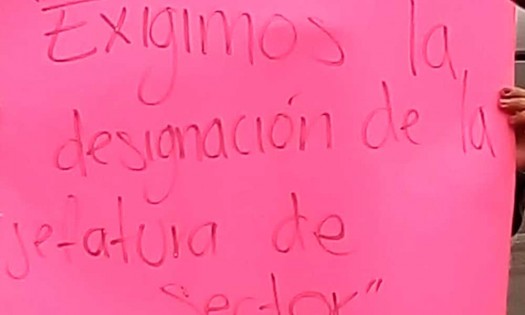 Exigimos la
designación de la
jefatura de
Sector"